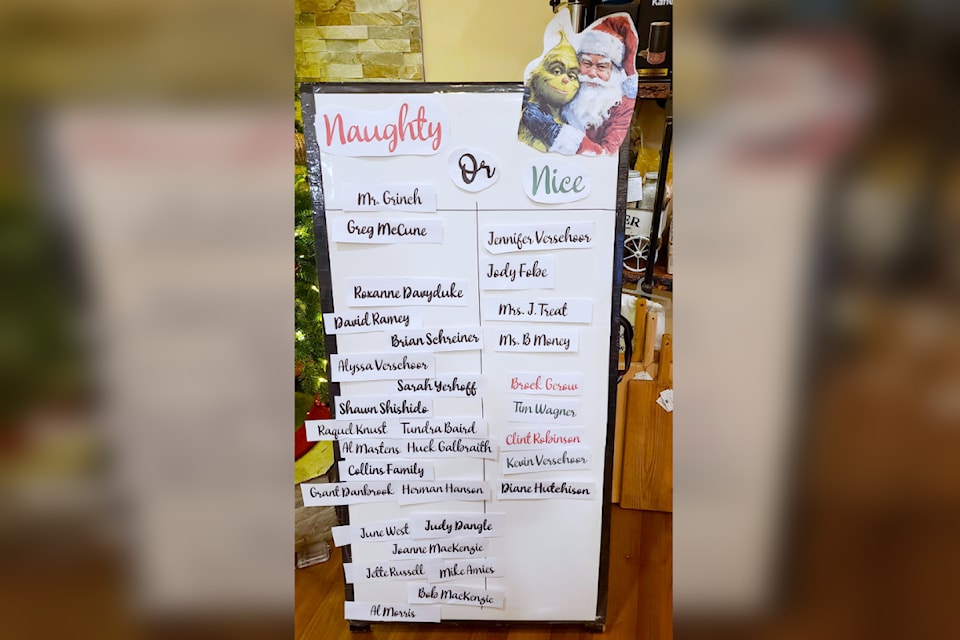 Naughty
Or
Nice
Mr. Grinch
Greg McCune
Roxanne Davyduke
David Ramey
Brian Schreiner
Alyssa Verschoor
Sarah Yerhoff
Shawn Shishido
Raquel Knust Tundra Baird
Al Martens Huck Galbraith
Collins Family
Grant Danbrook Herman Hanson
June West Judy Dangle
Joanne MacKenzie
Jette Russell Mike Amies
Bob MacKenzie
Al Morris
Jennifer Verschoor
Jody Fobe
Mrs. J. Treat
Ms. B Money
Brock Gerow
Tim Wagner
Clint Robinson
Kevin Verschoor
Diane Hutchison